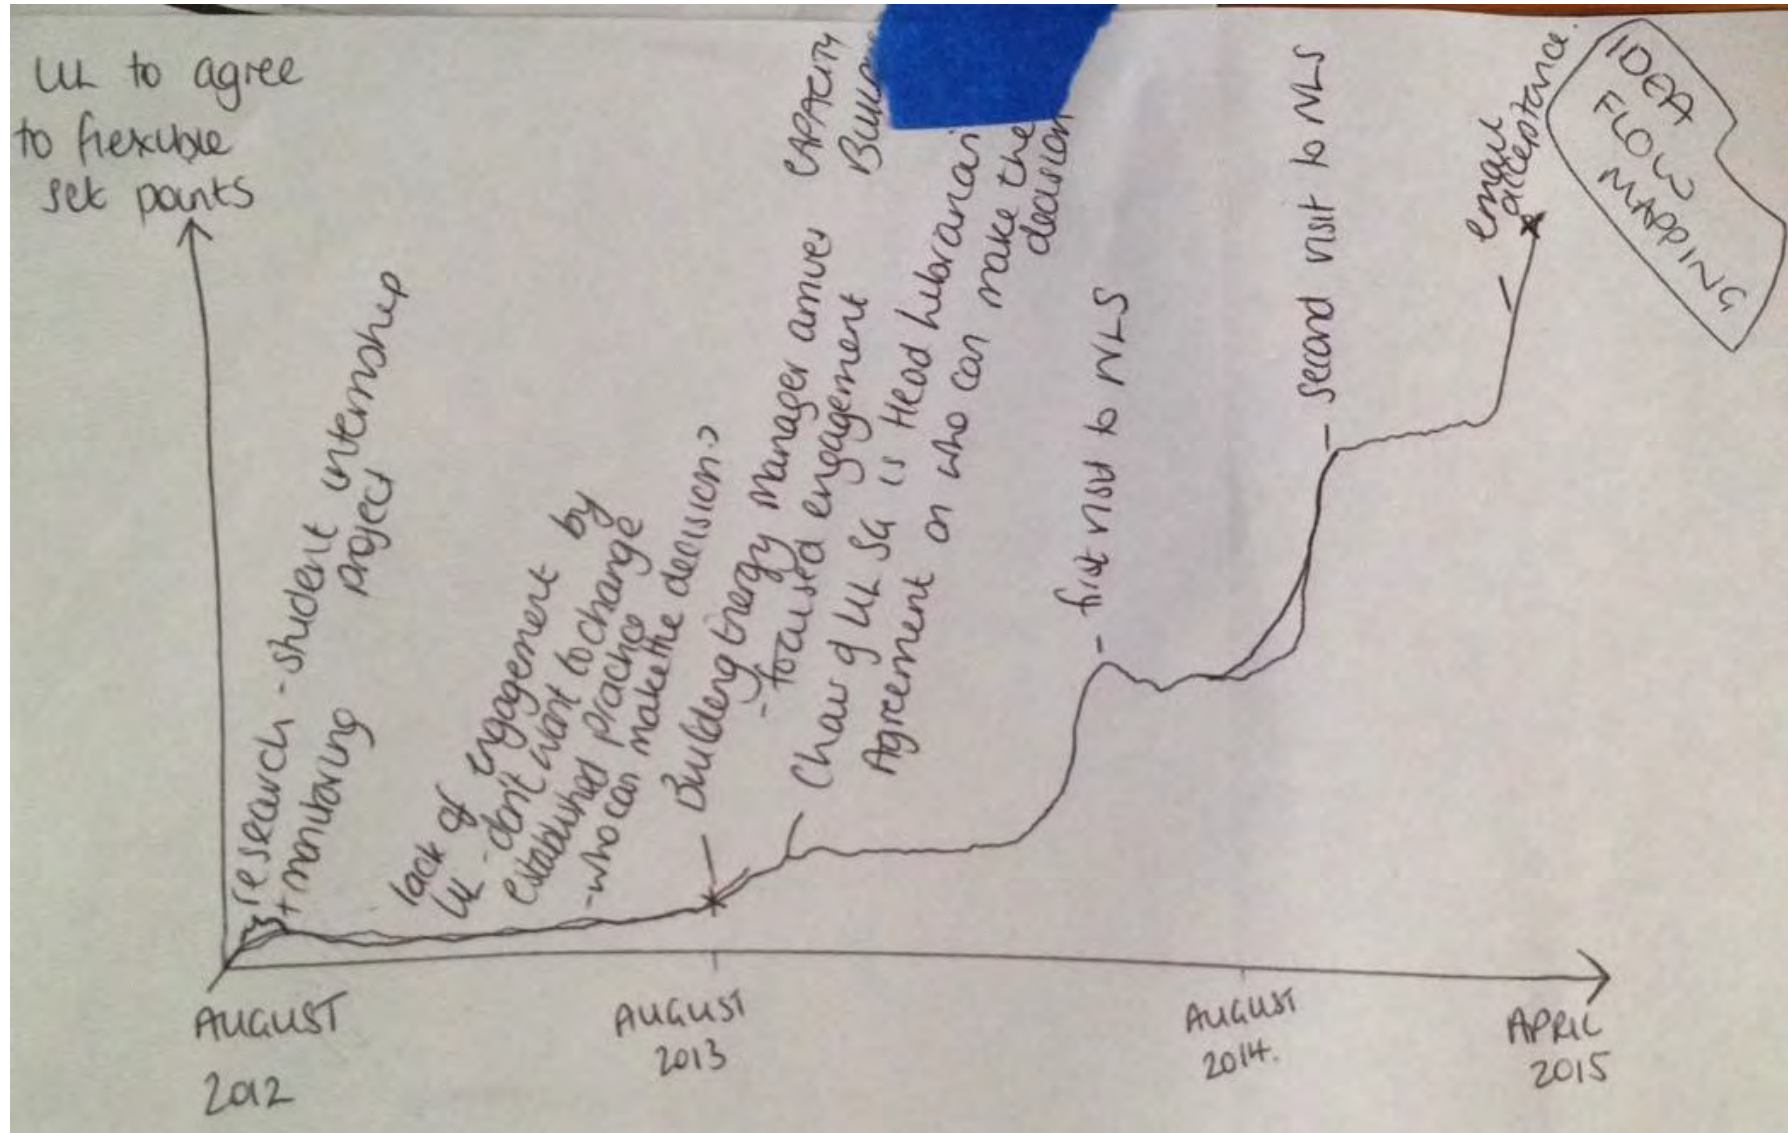 UL to agree
to flexible
set points
research - student internship
project
+ monitoring
lack of engagement by
UL - don't want to change
established practice
- who can make the decision?
Building Energy Manager arrives
- focused engagement
CAPACITY
Chair of UL SG is Head Librarian
Agreement on who can make the
decision
- first visit to NLS
- second visit to NLS
email
acceptance.
IDEA
FLOW
MAPPING
AUGUST
2012
AUGUST
2013
AUGUST
2014.
APRIL
2015